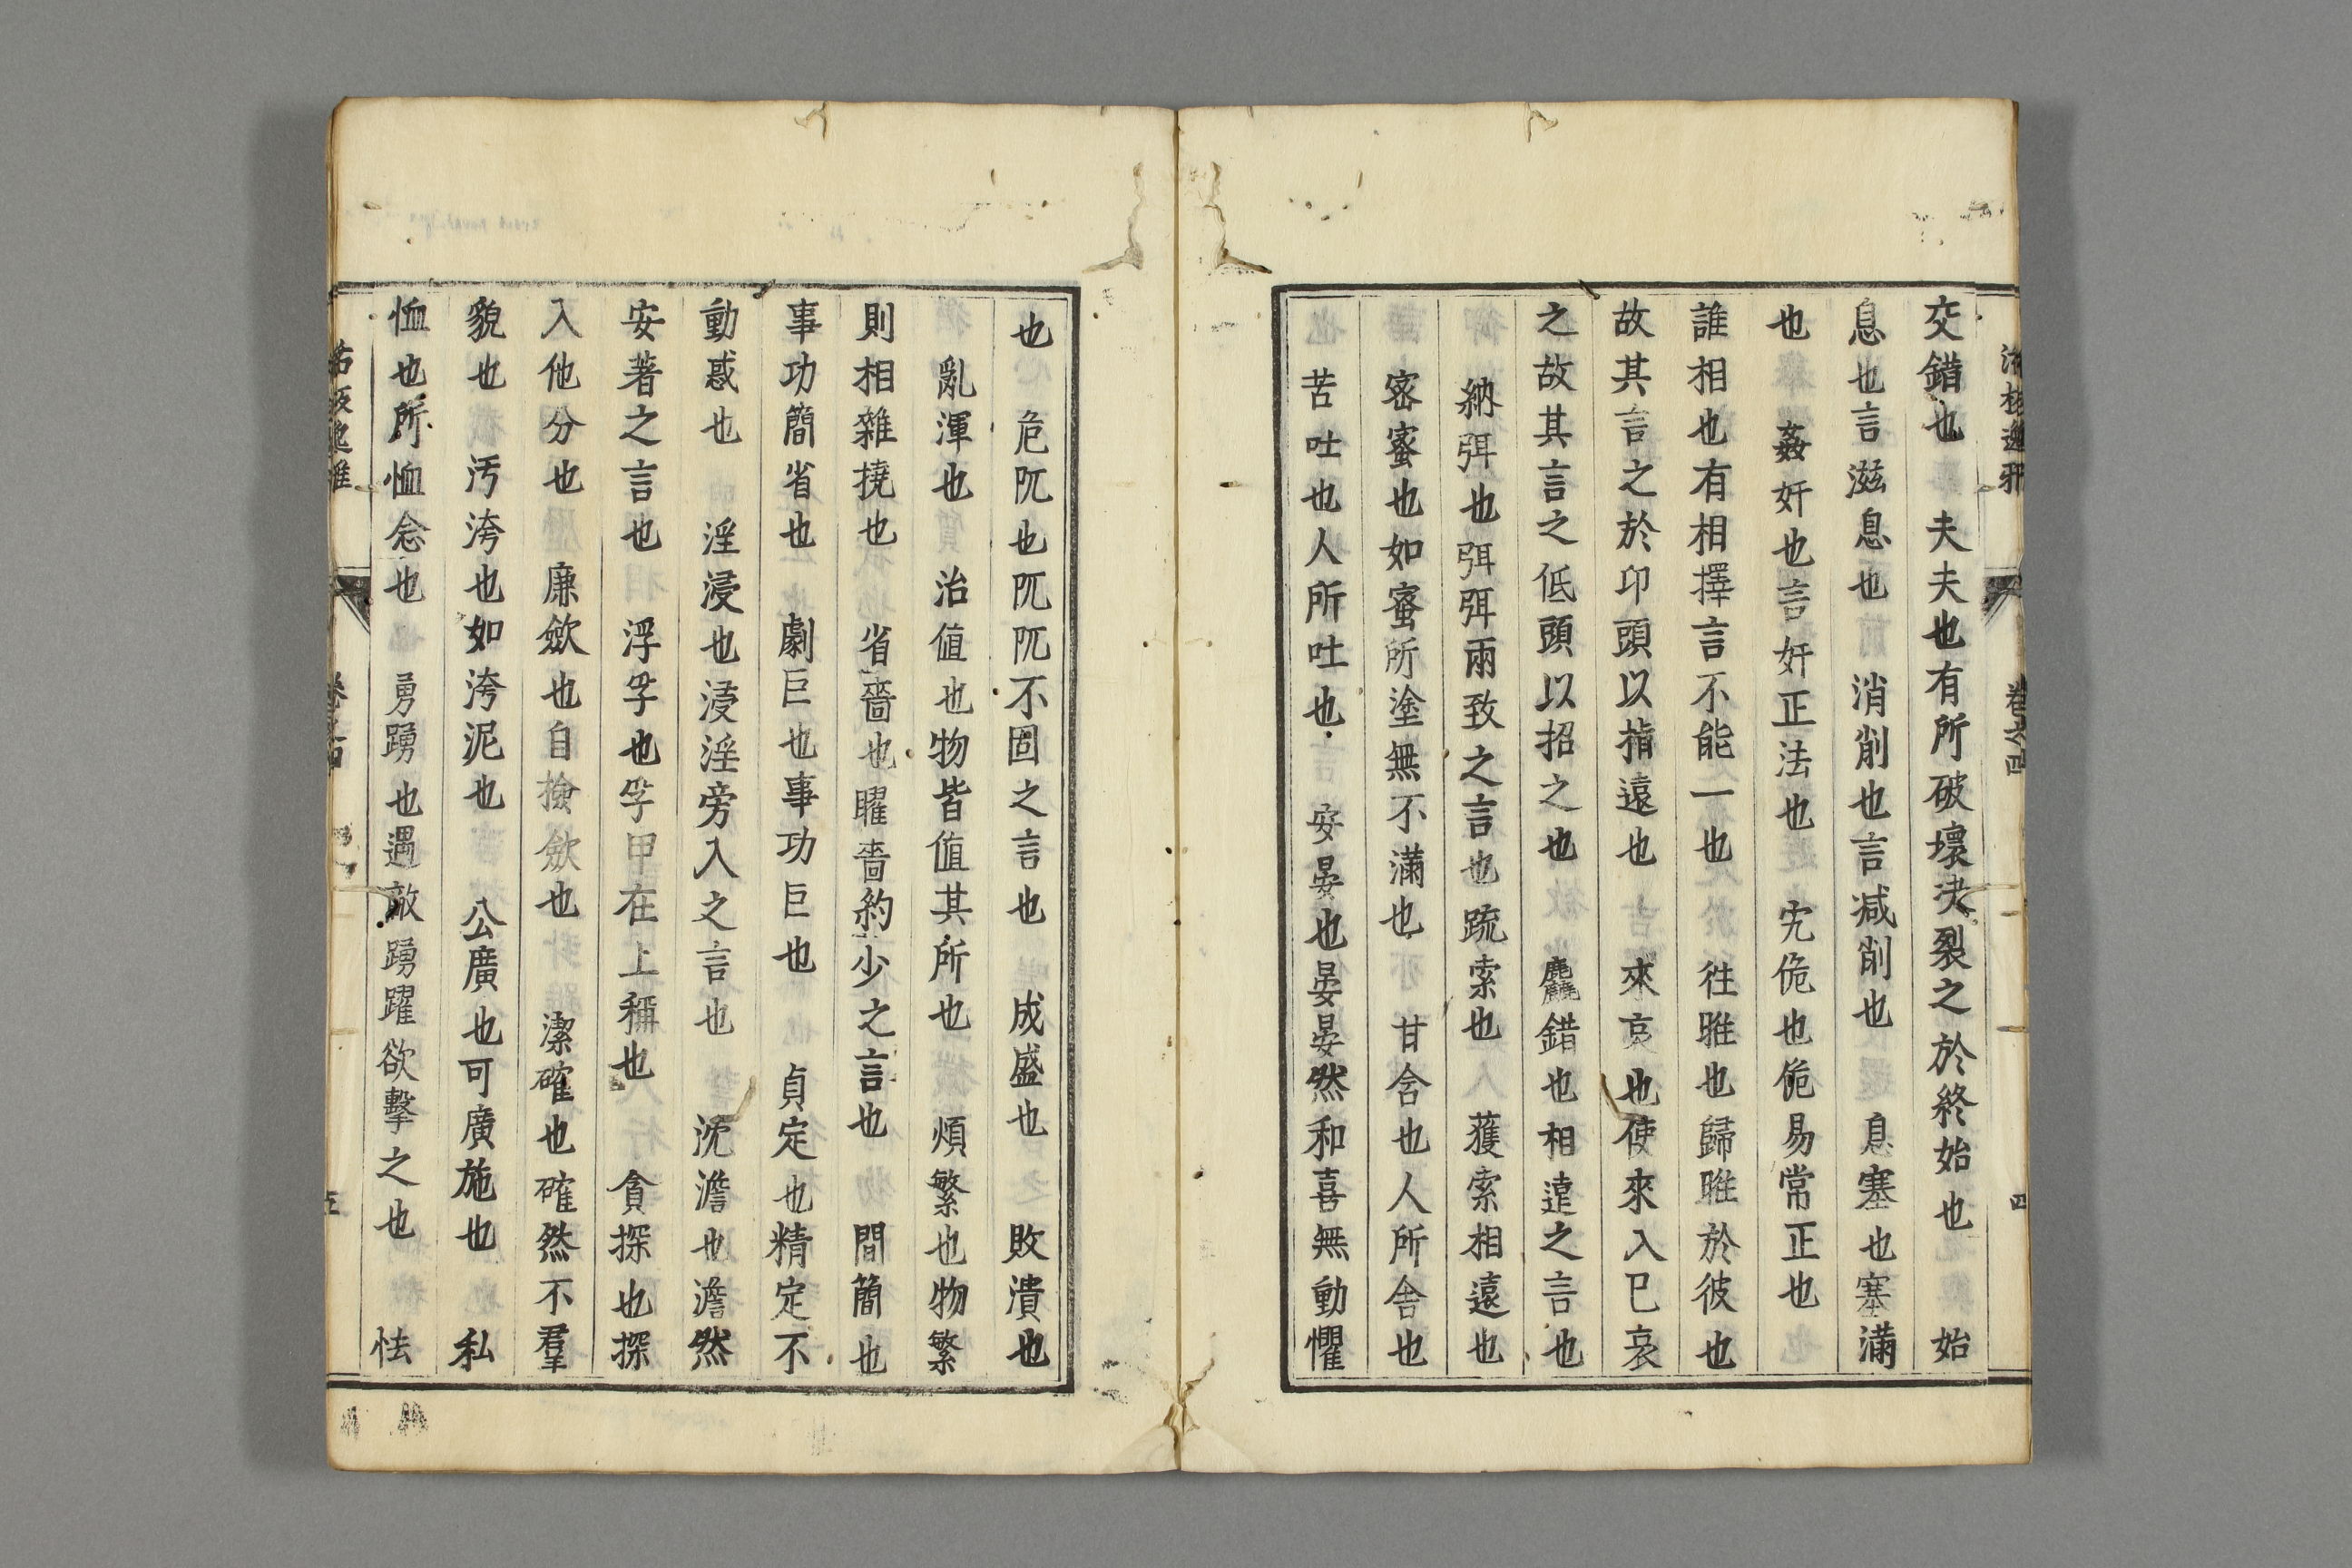 交錯也　夫夫也有所破壞決裂之於終始也　始
息也言滋息也　消削也言減削也　息塞也塞滿
也　姦奸也言奸正法也　宄佹也佹易常正也
誰相也有相擇言不能一也　往暀也歸暀於彼也
故其言之於卬頭以指遠也　來哀也使來入已哀
之故其言之低頭以招之也　麤錯也相遠之言也
納弭也弭弭兩致之言也　疏索也　蒦索相遠也
密蜜也如蜜所塗無不滿也　甘含也人所含也
苦吐也人所吐也　安晏也晏晏然和喜無動懼
也　危阢也阢阢不固之言也　成盛也　敗潰也
亂渾也　治値也物皆値其所也　煩繁也物繁
則相雜撓也　省嗇也曜嗇約少之言也　間簡也
事功簡省也　劇巨也事功巨也　貞定也精定不
動惑也　淫浸也浸淫旁入之言也　沈澹也澹然
安著之言也　浮孚也孚甲在上稱也　貪探也探
入他分也　廉歛也自撿歛也　潔確也確然不羣
貌也　汚洿也如洿泥也　公廣也可廣施也　私
恤也所恤念也　勇踴也遇敵踴躍欲擊之也　怯